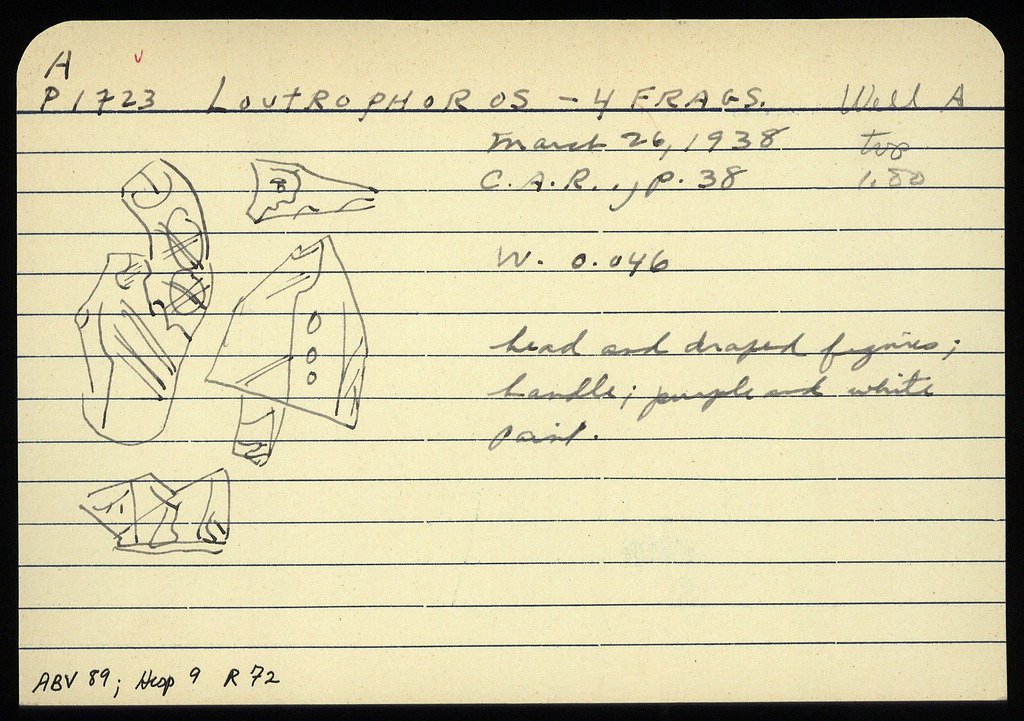 A
P 1723 LOUTROPHOROS - 4 FRAGS. Well A
March 26, 1938
C.A.R., p. 38 1.80
W. 0.046
head and draped figures;
handle; purple and white
paint.
ABV 89; Hesp 9 R 72